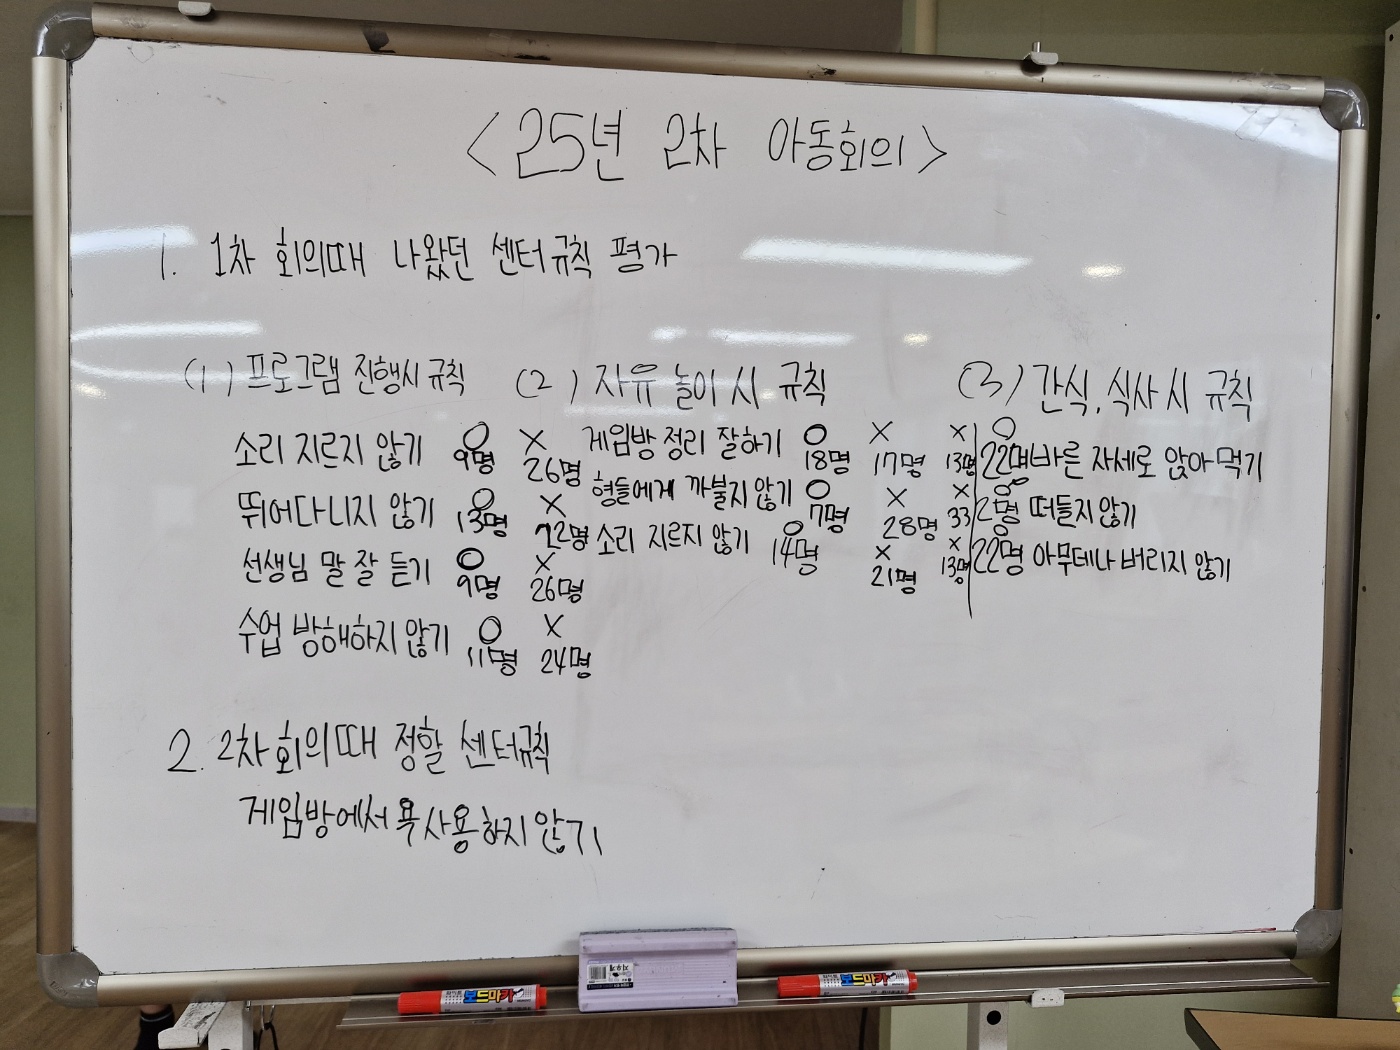 <25년 2차 아동회의>
1. 1차 회의때 나왔던 센터규칙 평가
(1) 프로그램 진행시 규칙
소리 지르지 않기 O 9명 X 26명
뛰어다니지 않기 O 13명 X 22명
선생님 말 잘 듣기 O 9명 X 26명
수업 방해하지 않기 O 11명 X 24명
(2) 자유 놀이 시 규칙
게임방 정리 잘하기 O 18명 X 17명
형들에게 까불지 않기 O 7명 X 28명
소리 지르지 않기 O 14명 X 21명
(3) 간식, 식사 시 규칙
X 13명 O 22명 바른 자세로 앉아 먹기
X 33 O 2명 떠들지 않기
X 13명 O 22명 아무데나 버리지 않기
2. 2차 회의때 정할 센터규칙
게임방에서 욕 사용하지 않기
보드마카
보드마카